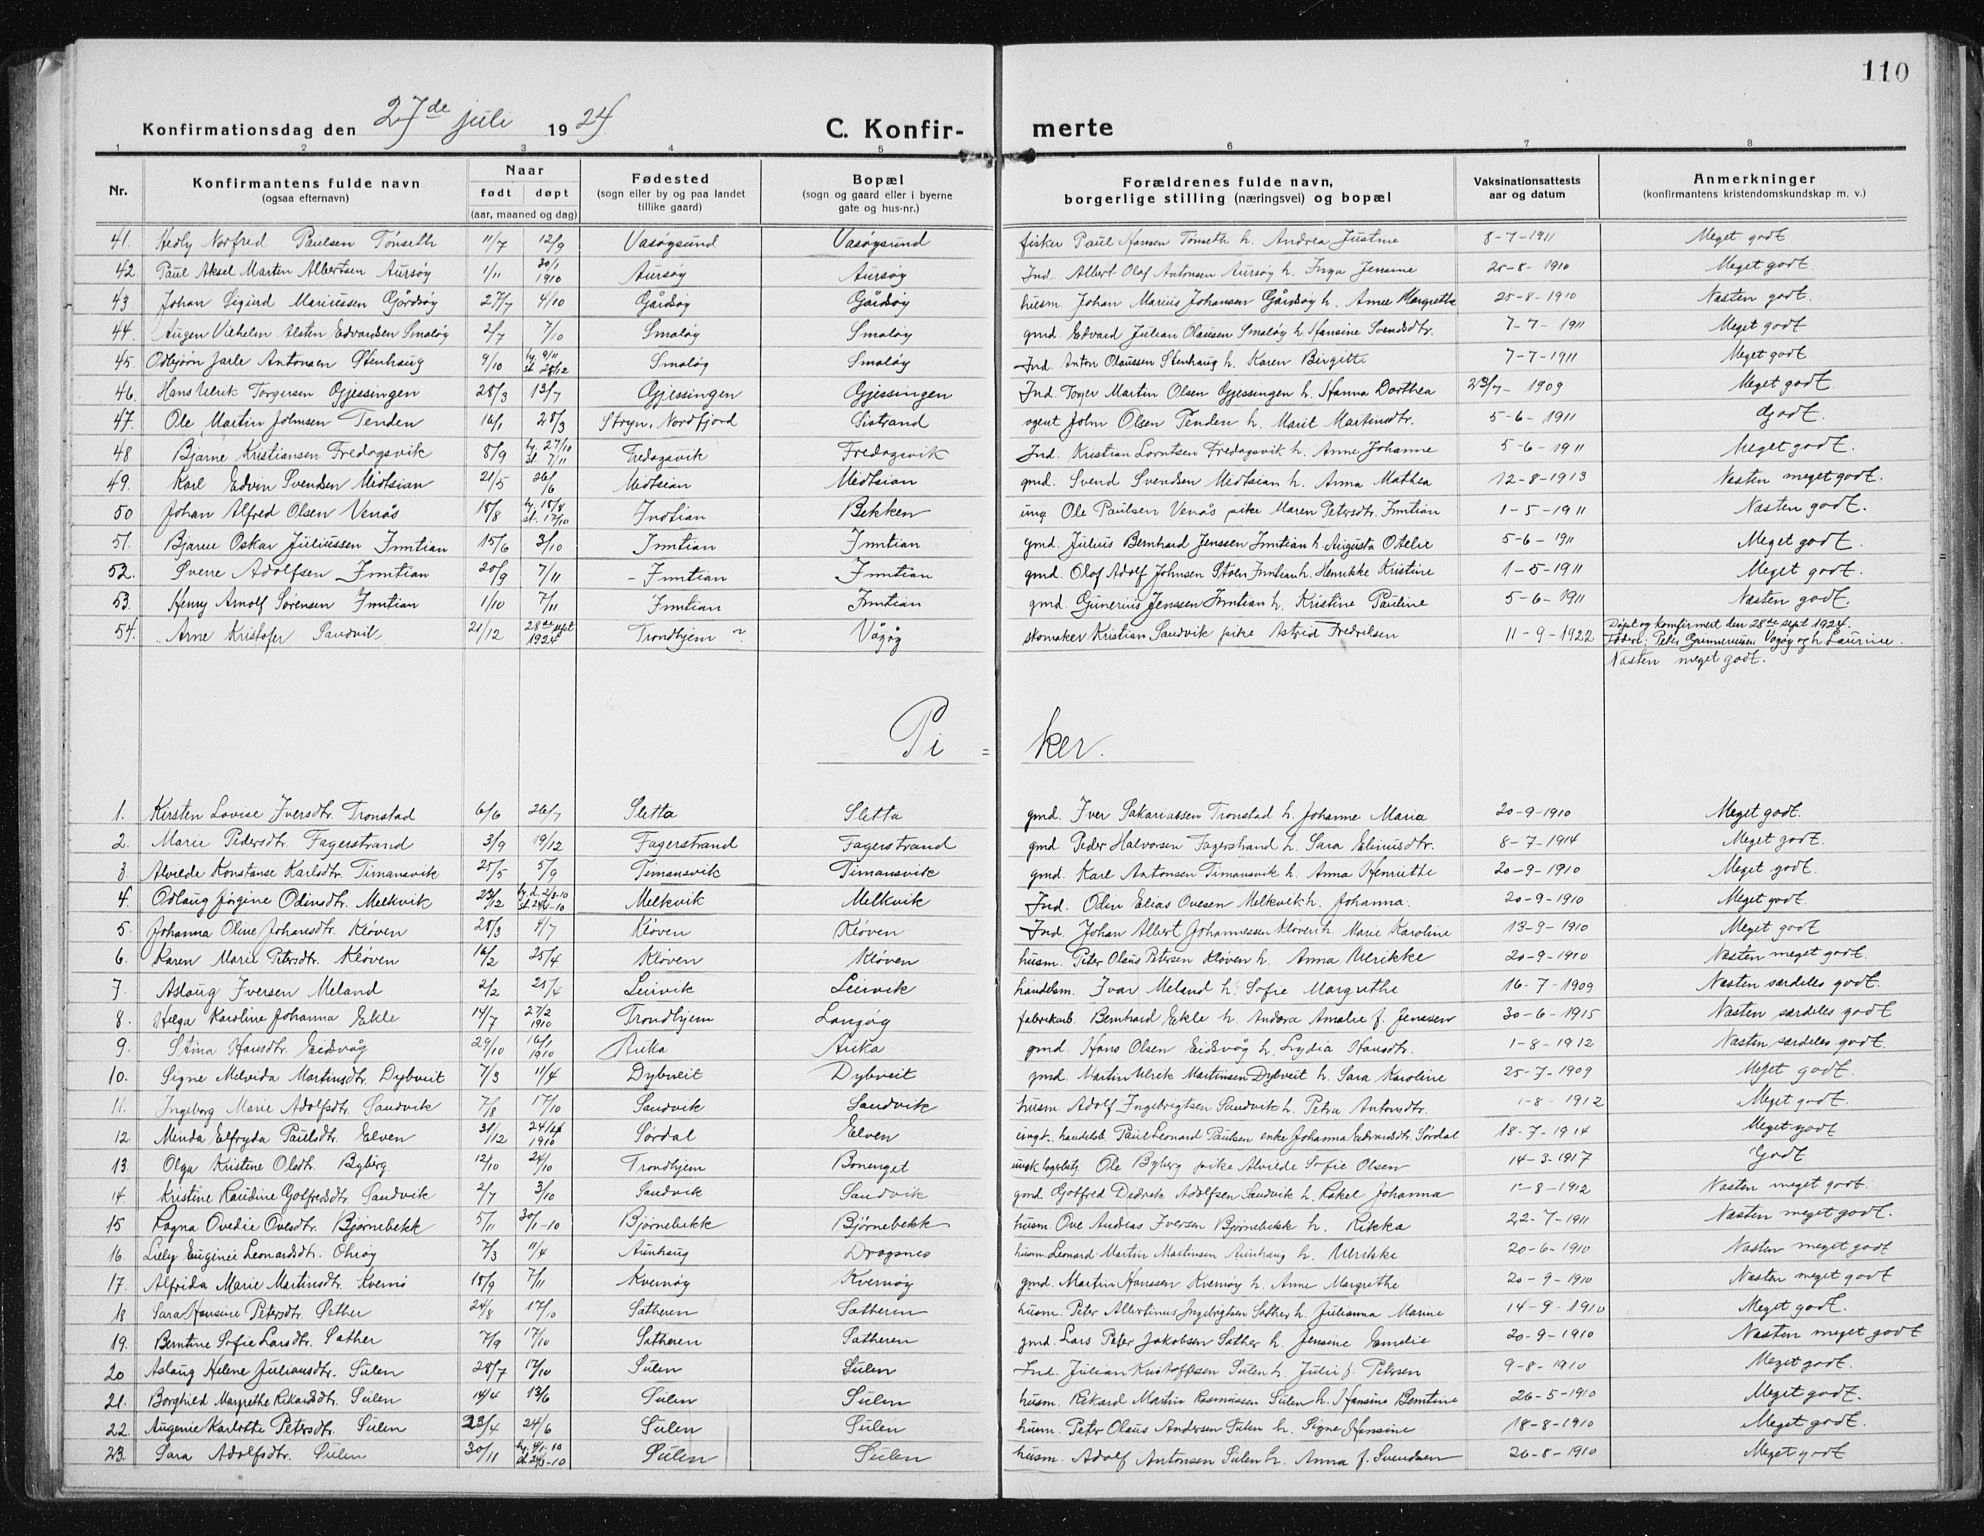 110
Konfirmationsdag den 27de juli 1924 C. Konfir- merte
1 2 3 4 5 6 7 8
Nr. Konfirmantens fulde navn (ogsaa efternavn) Naar født døpt (aar, maaned og dag) Fødested (sogn eller by og paa landet tillike gaard) Bopæl (sogn og gaard eller i byerne gate og hus-nr.) Forældrenes fulde navn, borgerlige stilling (næringsvei) og bopæl Vaksinationsattests aar og datum Anmerkninger (konfirmantens kristendomskundskap m. v.)
41. Hedly Norfred Paulsen Tønseth 11/7 12/9 Vasøysund Vasøysund fisker Paul Hansen Tønseth h. Andrea Justine 8-7-1911 Meget godt
42. Paul Aksel Marten Albertsen Aursøy 1/11 30/1 1910 Aursøy Aursøy Ind. Albert Olaf Antonsen Aursøy h. Inga Jensine 20-8-1910 Meget godt.
43 Johan Sigurd Mariussen Gårdsøy 27/7 4/10 Gårdsøy Gårdsøy husm. Johan Marius Johansen Gårdsøy h. Anne Margrethe 25-8-1910 Næsten godt.
44. Augen Vilhelm Alsten Edvardsen Smaløy 2/7 7/10 Smaløy Smaløy gmd. Edvard Julian Olaussen Smaløy h. Hansine Svendsdtr. 7-7-1911 Meget godt
45 Odbjørn Jarle Antonsen Stenhaug 9/10 hj. 9/11 st. 28/12 Smaløy Smaløy Ind. Anton Olaussen Stenhaug h. Karen Birgitte 7-7-1911 Meget godt
46. Hans Ulrik Torgersen Gjessingen 28/3 13/7 Gjessingen Gjessingen Ind. Torger Martin Olsen Gjessingen h. Hanna Dorthea 23/7-1909 Meget godt
47. Ole Martin Johnsen Tenden 16/1 28/3 Stryn, Nordfjord Sistrand agent John Olsen Tenden h. Marit Martinsdtr. 5-6-1911 Godt.
48 Bjarne Kristiansen Fredagsvik 8/9 hj. 27/10 st. 7/11 Fredagsvik Fredagsvik Ind. Kristian Lorntsen Fredagsvik h. Anne Johanne 5-6-1911 Meget godt.
49. Karl Edvin Svendsen Midtsian 21/5 26/6 Midtsian Midtsian gmd. Svend Svendsen Midtsian h. Anna Mathea 12-8-1913 Næsten meget godt.
50 Johan Alfred Olsen Venås 18/8 hj. 18/8 st. 17/10 Indtian Bekken ung. Ole Paulsen Venås pike Maren Petersdtr. Inntian 1-5-1911 Næsten godt.
51. Bjarne Oskar Juliussen Inntian 15/6 3/10 Inntian Inntian gmd. Julius Bernhard Jenssen Inntian h. Augusta Otelie 5-6-1911 Meget godt.
52. Sverre Adolfsen Inntian 20/9 7/11 Inntian Inntian gmd. Olaf Adolf Johnsen Støen Inntian h. Henrikke Kristine 1-5-1911 Meget godt.
53. Henry Arnolf Sørensen Inntian 1/10 7/11 Inntian Inntian gmd. Gunerius Jenssen Inntian h. Kristine Pauline 5-6-1911 Næsten godt.
54. Arne Kristofer Sandvik 21/12 28de sept 1924 Trondhjem ? Vågøy skomaker Kristian Sandvik pike Astrid Fredriksen 11-9-1922 Døpt og konfirmert den 28de sept 1924. Peter Gunneriusen Vågøy og h. Laurine.
Næsten meget godt.
Pi = ker.
1. Kirsten Lovise Iversdtr. Tronstad 6/6 26/7 Sletta Sletta gmd. Iver Sakariassen Tronstad h. Johanne Maria 20-9-1910 Meget godt.
2. Marie Pedersdtr. Fagerstrand 3/9 19/12 Fagerstrand Fagerstrand gmd. Peder Halvorsen Fagerstrand h. Sara Eliusdtr. 8-7-1914 Meget godt
3. Alvilde Konstanse Karlsdtr. Timansvik 25/5 5/9 Timansvik Timansvik gmd. Karl Antonsen Timansvik h. Anna Henriette 20-9-1910 Meget godt
4. Odlaug Jørgine Odinsdtr. Melkvik 29/12 Melkvik Melkvik Ind. Odin Elias Ovesen Melkvik h. Johanna. 20-9-1910 Meget godt.
5 Johanna Oline Johansdtr. Kløven 28/3 4/7 Kløven Kløven Ind. Johan Albert Johannessen Kløven h. Marie Karoline 13-9-1910 Meget godt
6. Karen Marie Petersdtr. Kløven 16/2 25/4 Kløven Kløven husm. Peter Olaus Petersen Kløven h. Anna Ulrikke 20-9-1910 Næsten meget godt.
7 Aslaug Iversen Meland 2/2 25/4 Leirvik Leirvik handelsm. Ivar Meland h. Sofie Margrethe 16-7-1909 Næsten særdeles godt.
8. Helga Karoline Johanna Ekle 14/7 27/2 1910 Trondhjem Langøy fabrikarb. Bernhard Ekle h. Andora Amalie f. Jenssen 30-6-1915 Næsten særdeles godt
9. Stina Hansdtr. Eidsvåg 29/10 16/1 1910 Auka Auka gmd. Hans Olsen Eidsvåg h. Lydia Hansdtr. 1-8-1912 Næsten særdeles godt.
10. Signe Melvida Martinsdtr. Dybveit 7/3 11/4 Dybveit Dybveit gmd. Martin Ulrik Martinsen Dybveit h. Sara Karoline 25-7-1909 Meget godt.
11. Ingeborg Marie Adolfsdtr. Sandvik 7/8 17/10 Sandvik Sandvik husm. Adolf Ingebrigtsen Sandvik h. Petra Antonsdtr. 1-8-1912 Meget godt.
12 Minda Elfryda Paulsdtr. Elven 31/12 24/4 1910 Sørdal Elven Paul Leonard Paulsen enke Johanna Edvardsdtr. Sørdal 18-7-1914 Meget godt
13. Olga Kristine Olsdtr. Byberg. 12/10 24/10 Trondhjem Bonenget Ole Byberg pike Alvilde Sofie Olsen 14-3-1917 Godt
14. Kristine Raudine Gotfredsdtr. Sandvik 2/7 3/10 Sandvik Sandvik gmd. Gotfred Didrik Adolfsen Sandvik h. Rakel Johanna 1-8-1912 Næsten meget godt.
15 Ragna Ovedie Ovesdtr. Bjørnebekk 5/11 30/1-10 Bjørnebekk Bjørnebekk husm. Ove Andreas Iversen Bjørnebekk h. Rikka 22-7-1911 Næsten meget godt.
16. Lilly Euginie Leonardsdtr. Ohrøy 7/3 11/4 Aunhaug Dragsnes husm. Leonard Martin Martinsen Aunhaug h. Ulrikke 20-6-1910 Næsten meget godt
17. Alfrida Marie Martinsdtr. Kvernø 18/9 7/11 Kvernøy Kvernøy gmd. Martin Hanssen Kvernøy h. Anne Margrethe 20-9-1910 Næsten meget godt
18 Sara Hansine Petersdtr. Sæther 24/8 17/10 Sætheren Sætheren husm. Peter Albertinus Ingebrigtsen Sæther h. Julianna Marine 14-9-1910 Meget godt.
19. Berntine Sofie Larsdtr. Sæther 7/9 17/10 Sætheren Sætheren gmd. Lars Peter Jakobsen Sæther h. Jensine Emelie 20-9-1910 Næsten meget godt
20 Aslaug Helene Juliansdtr. Sulen 28/7 17/10 Sulen Sulen Ind. Julian Kristoffersen Sulen h. Julie f. Petersen 9-8-1910 Meget godt.
21. Borghild Margrethe Rikardsdtr. Sulen 14/4 13/6 Sulen Sulen husm. Rikard Martin Rasmussen Sulen h. Hansine Berntine 26-5-1910 Meget godt.
22. Augenie Karlotte Petersdtr. Sulen 23/4 24/6 Sulen Sulen husm. Peter Olaus Andersen Sulen h. Signe Hansine 18-8-1910 Meget godt.
23. Sara Adolfsdtr. Sulen 30/11 Sulen Sulen husm. Adolf Antonsen Sulen h. Anna f. Svendsen 26-8-1910 Meget godt